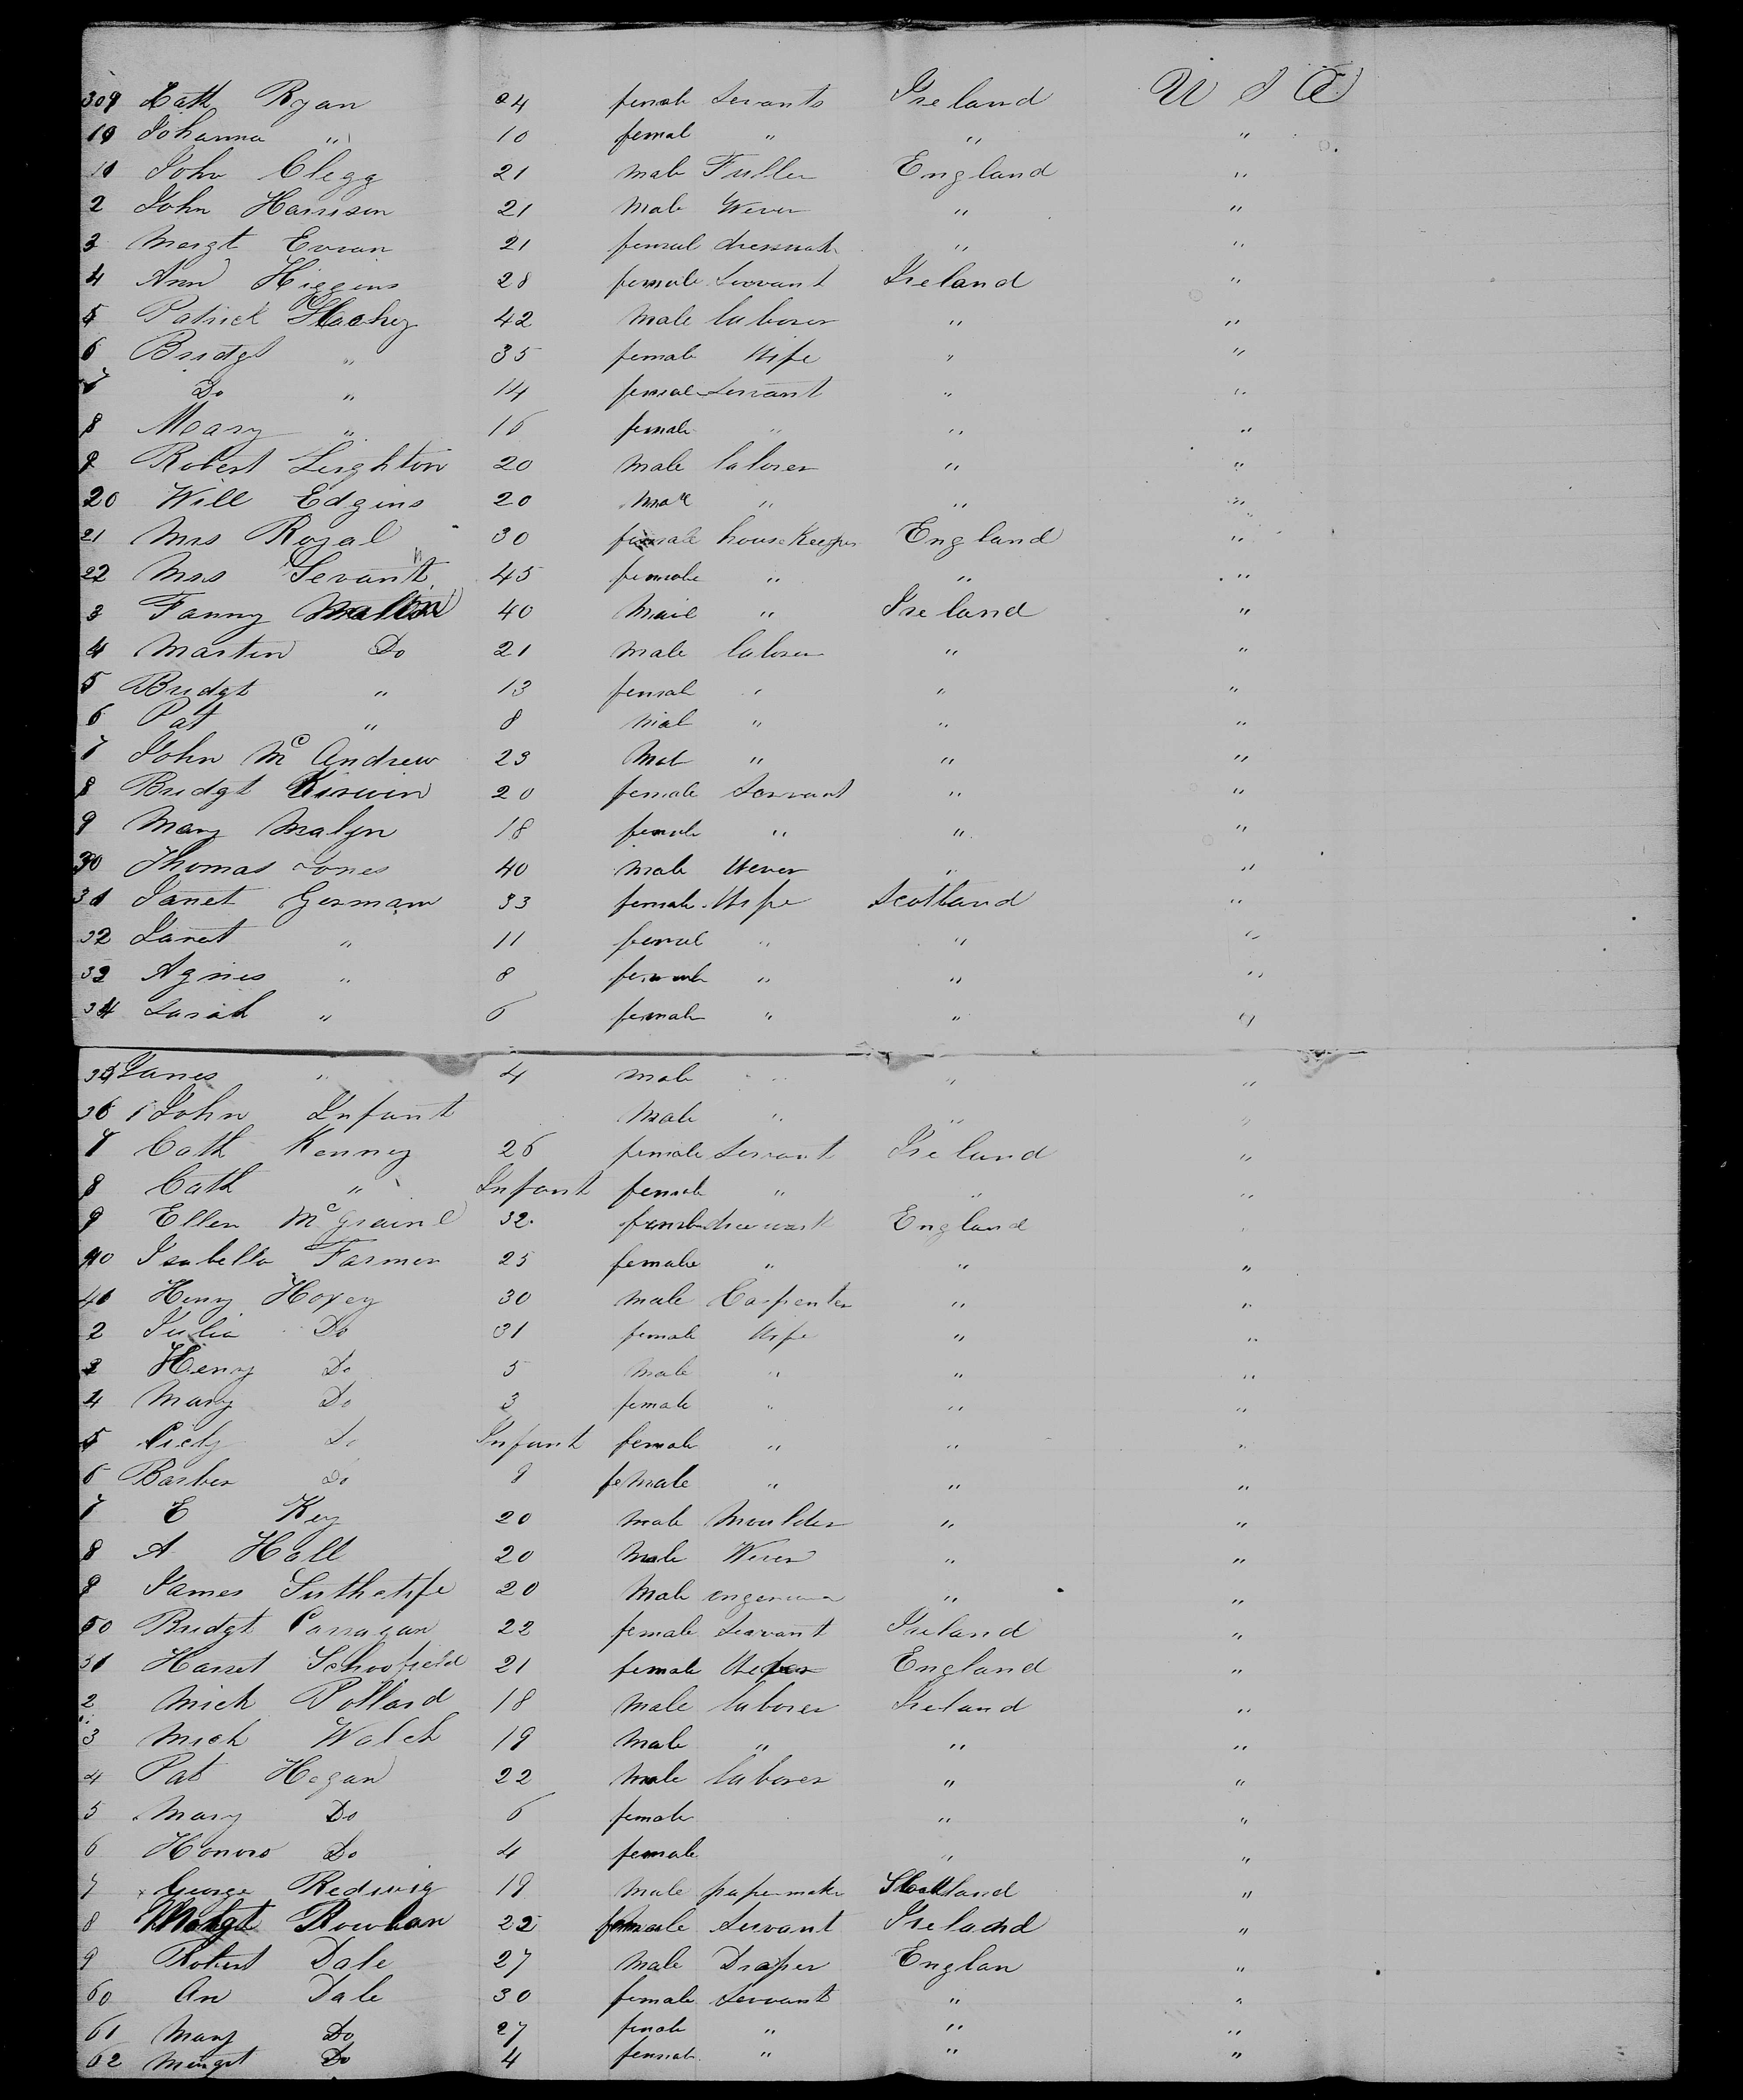 309 Cath Ryan 24 femal Servants Ireland U S A
10 Johanna " 10 femal " " "
11 John Clegg 21 male Fuller England "
2 John Harrison 21 Male Wever " "
3 Margt Evran 21 femal dressmak " "
4 Ann Higgins 28 female Servant Ireland "
5 Patrick 42 Male laborer " "
6 Bridgt " 35 female Wife " "
7 Do " 14 female Servant " "
8 Meary " 16 female " " "
9 Robert Leighton 20 male laborer " "
20 Will Edgins 20 male " " "
21 Mrs Royal 30 female house Keeper England "
22 Mrs 45 female " " "
3 Fanny 40 Mail " Ireland "
4 Martin Do 21 male laborer " "
5 Bridgt " 13 female " " "
6 Pat " 8 mal " " "
7 John Mc Andrew 23 Male " " "
8 Bridgt Kirwin 20 female Servant " "
9 Mary Malyn 18 female " " "
30 Thomas Jones 40 male Wever " "
31 Janet German 33 female Wife Scotland "
32 Janet " 11 femal " " "
33 Agnes " 8 female " " "
34 Sarah " 6 female " " "
35 James " 4 male " " "
36 John Infant Male " " "
7 Cath Kenney 26 female Servant Ireland "
8 Cath " Infant female " " "
9 Ellen 32 England
40 Isabella Farmer 25 female " " "
41 Henry Hoxey 30 male Carpenter " "
2 Julia Do 31 female Wife " "
3 Henry Do 5 male " " "
4 Mary Do 3 female " " "
5 Do Infant female " " "
6 Barber Do 9 female " " "
7 E Key 20 male Moulder " "
8 A Hall 20 Male Wever " "
9 James 20 Male " "
50 Bridgt Carragan 22 female Servant Ireland "
51 Harret Schoofield 21 female England "
2 Mich Pollard 18 Male laborer Ireland "
3 Mich Walch 19 Male " " "
4 Pat Hogan 22 Male laborer " "
5 Mary Do 6 female " "
6 Honoro Do 4 female " "
7 George Redwig 19 male papermaker Scotland "
8 Margt Rowhan 22 female Servant Ireland "
9 Robert Dale 27 Male Draper Englan "
60 An Dale 30 female Servant " "
61 Mary Do 27 female " " "
62 Do 4 female " " "